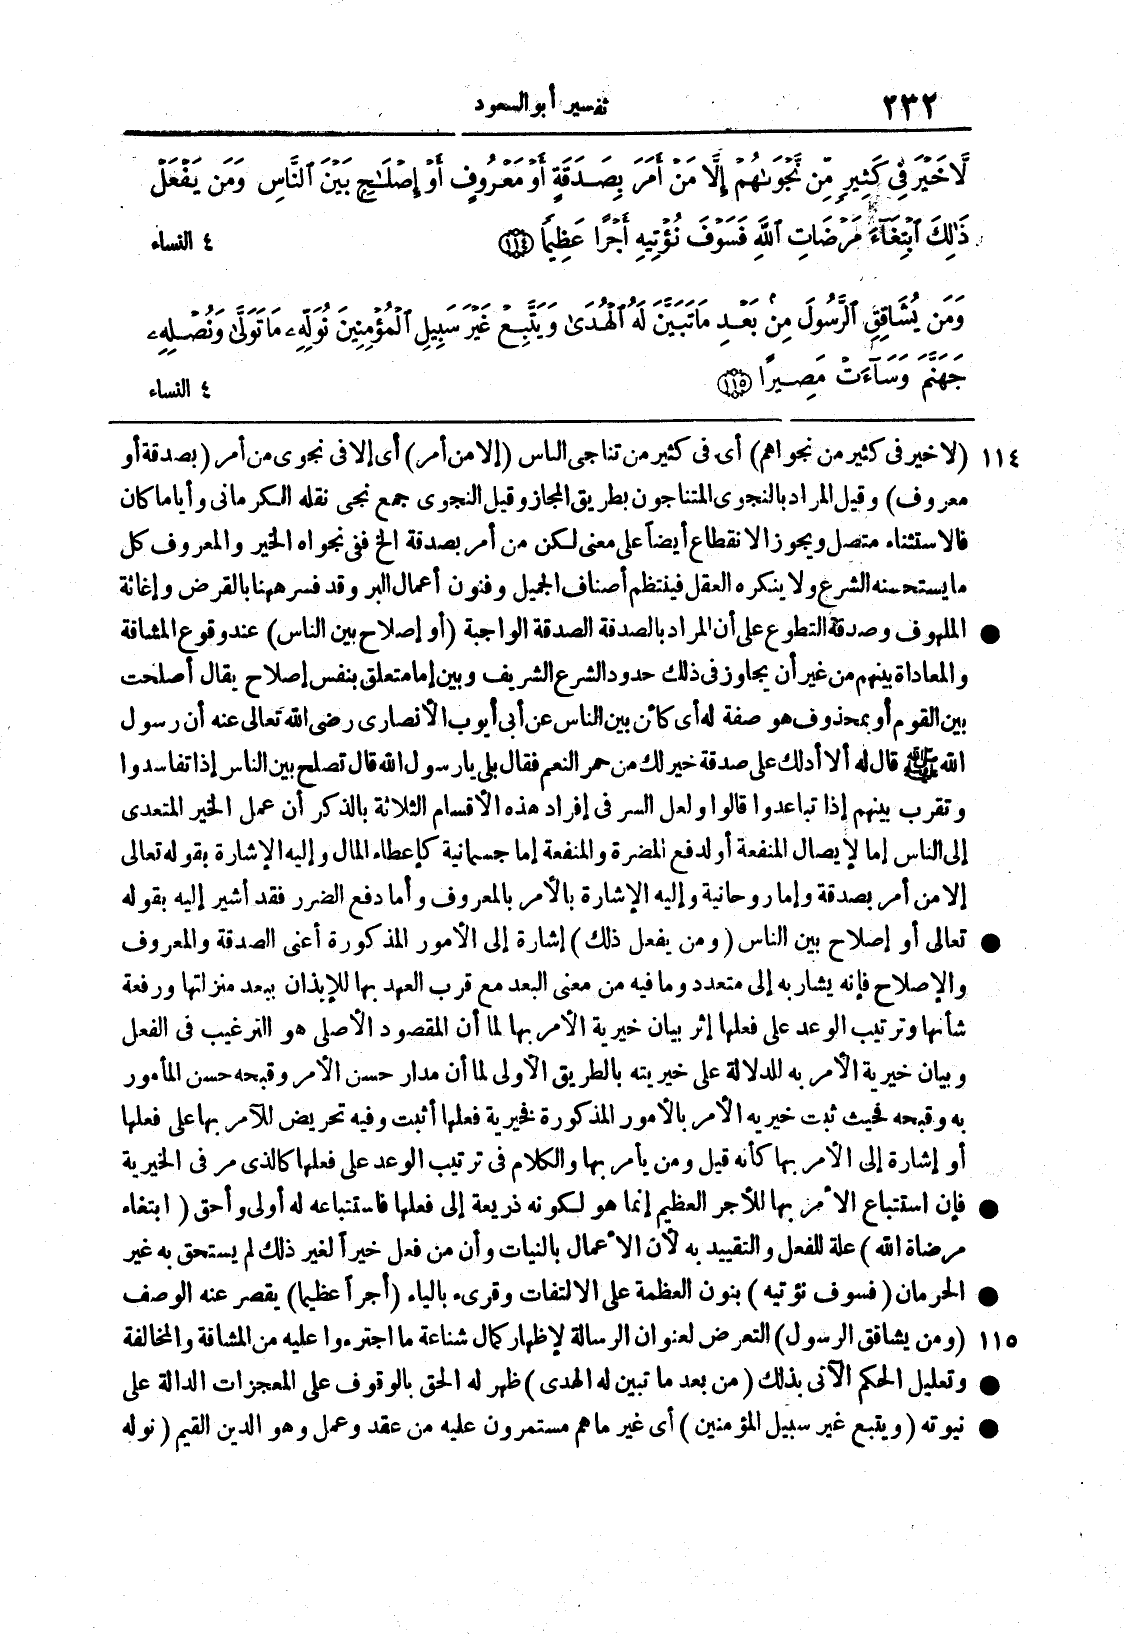 ٢٣٢ تفسير أبو السعود
لَّا خَيْرَ فِي كَثِيرٍ مِّن نَّجْوَىٰهُمْ إِلَّا مَنْ أَمَرَ بِصَدَقَةٍ أَوْ مَعْرُوفٍ أَوْ إِصْلَٰحٍ بَيْنَ ٱلنَّاسِ وَمَن يَفْعَلْ
ذَٰلِكَ ٱبْتِغَآءَ مَرْضَاتِ ٱللَّهِ فَسَوْفَ نُؤْتِيهِ أَجْرًا عَظِيمًا ١١٤ ٤ النساء
وَمَن يُشَاقِقِ ٱلرَّسُولَ مِنۢ بَعْدِ مَا تَبَيَّنَ لَهُ ٱلْهُدَىٰ وَيَتَّبِعْ غَيْرَ سَبِيلِ ٱلْمُؤْمِنِينَ نُوَلِّهِۦ مَا تَوَلَّىٰ وَنُصْلِهِۦ
جَهَنَّمَ وَسَآءَتْ مَصِيرًا ١١٥ ٤ النساء
١١٤ (لا خير فى كثير من نجواهم) أى فى كثير من تناجى الناس (إلا من أمر) أى إلا فى نجوى من أمر (بصدقة أو
معروف) وقيل المراد بالنجوى المتناجون بطريق المجاز وقيل النجوى جمع نجى نقله الكرمانى وأياما كان
فالاستثناء متصل ويجوز الانقطاع أيضاً على معنى لكن من أمر بصدقة الخ ففى نجواه الخير والمعروف كل
ما يستحسنه الشرع ولا ينكره العقل فينتظم أصناف الجميل وفنون أعمال البر وقد فسر ههنا بالقرض وإغاثة
● الملهوف وصدقة التطوع على أن المراد بالصدقة الصدقة الواجبة (أو إصلاح بين الناس) عند وقوع المشاقة
والمعاداة بينهم من غير أن يجاوز فى ذلك حدود الشرع الشريف وبين إما متعلق بنفس إصلاح يقال أصلحت
بين القوم أو بمحذوف هو صفة له أى كائن بين الناس عن أبى أيوب الأنصارى رضى الله تعالى عنه أن رسول
الله ﷺ قال له ألا أدلك على صدقة خير لك من حمر النعم فقال بلى يا رسول الله قال تصلح بين الناس إذا تفاسدوا
وتقرب بينهم إذا تباعدوا قالوا ولعل السر فى إفراد هذه الأقسام الثلاثة بالذكر أن عمل الخير المتعدى
إلى الناس إما لإيصال المنفعة أو لدفع المضرة والمنفعة إما جسمانية كإعطاء المال وإليه الإشارة بقوله تعالى
إلا من أمر بصدقة وإما روحانية وإليه الإشارة بالأمر بالمعروف وأما دفع الضرر فقد أشير إليه بقوله
● تعالى أو إصلاح بين الناس (ومن يفعل ذلك) إشارة إلى الأمور المذكورة أعنى الصدقة والمعروف
والإصلاح فإنه يشار به إلى متعدد وما فيه من معنى البعد مع قرب العهد بها للإيذان ببعد منزلتها ورفعة
شأنها وترتيب الوعد على فعلها إثر بيان خيرية الأمر بها لما أن المقصود الأصلى هو الترغيب فى الفعل
وبيان خيرية الأمر به للدلالة على خيريته بالطريق الأولى لما أن مدار حسن الأمر وقبحه حسن المأمور
به وقبحه فحيث ثبت خيريه الأمر بالأمور المذكورة فخيرية فعلها أثبت وفيه تحريض للآمر بها على فعلها
أو إشارة إلى الأمر بها كأنه قيل ومن يأمر بها والكلام فى ترتيب الوعد على فعلها كالذى مر فى الخيرية
● فإن استتباع الأمر بها للأجر العظيم إنما هو لكونه ذريعة إلى فعلها فاستتباعه له أولى وأحق (ابتغاء
مرضاة الله) علة للفعل والتقييد به لأن الأعمال بالنيات وأن من فعل خيراً لغير ذلك لم يستحق به غير
● الحرمان (فسوف نؤتيه) بنون العظمة على الالتفات وقرىء بالياء (أجراً عظيما) يقصر عنه الوصف
١١٥ (ومن يشاقق الرسول) التعرض لعنوان الرسالة لإظهار كمال شناعة ما اجترءوا عليه من المشاقة والمخالفة
● وتعليل الحكم الآتى بذلك (من بعد ما تبين له الهدى) ظهر له الحق بالوقوف على المعجزات الدالة على
● نبوته (ويتبع غير سبيل المؤمنين) أى غير ما هم مستمرون عليه من عقد وعمل وهو الدين القيم (نوله